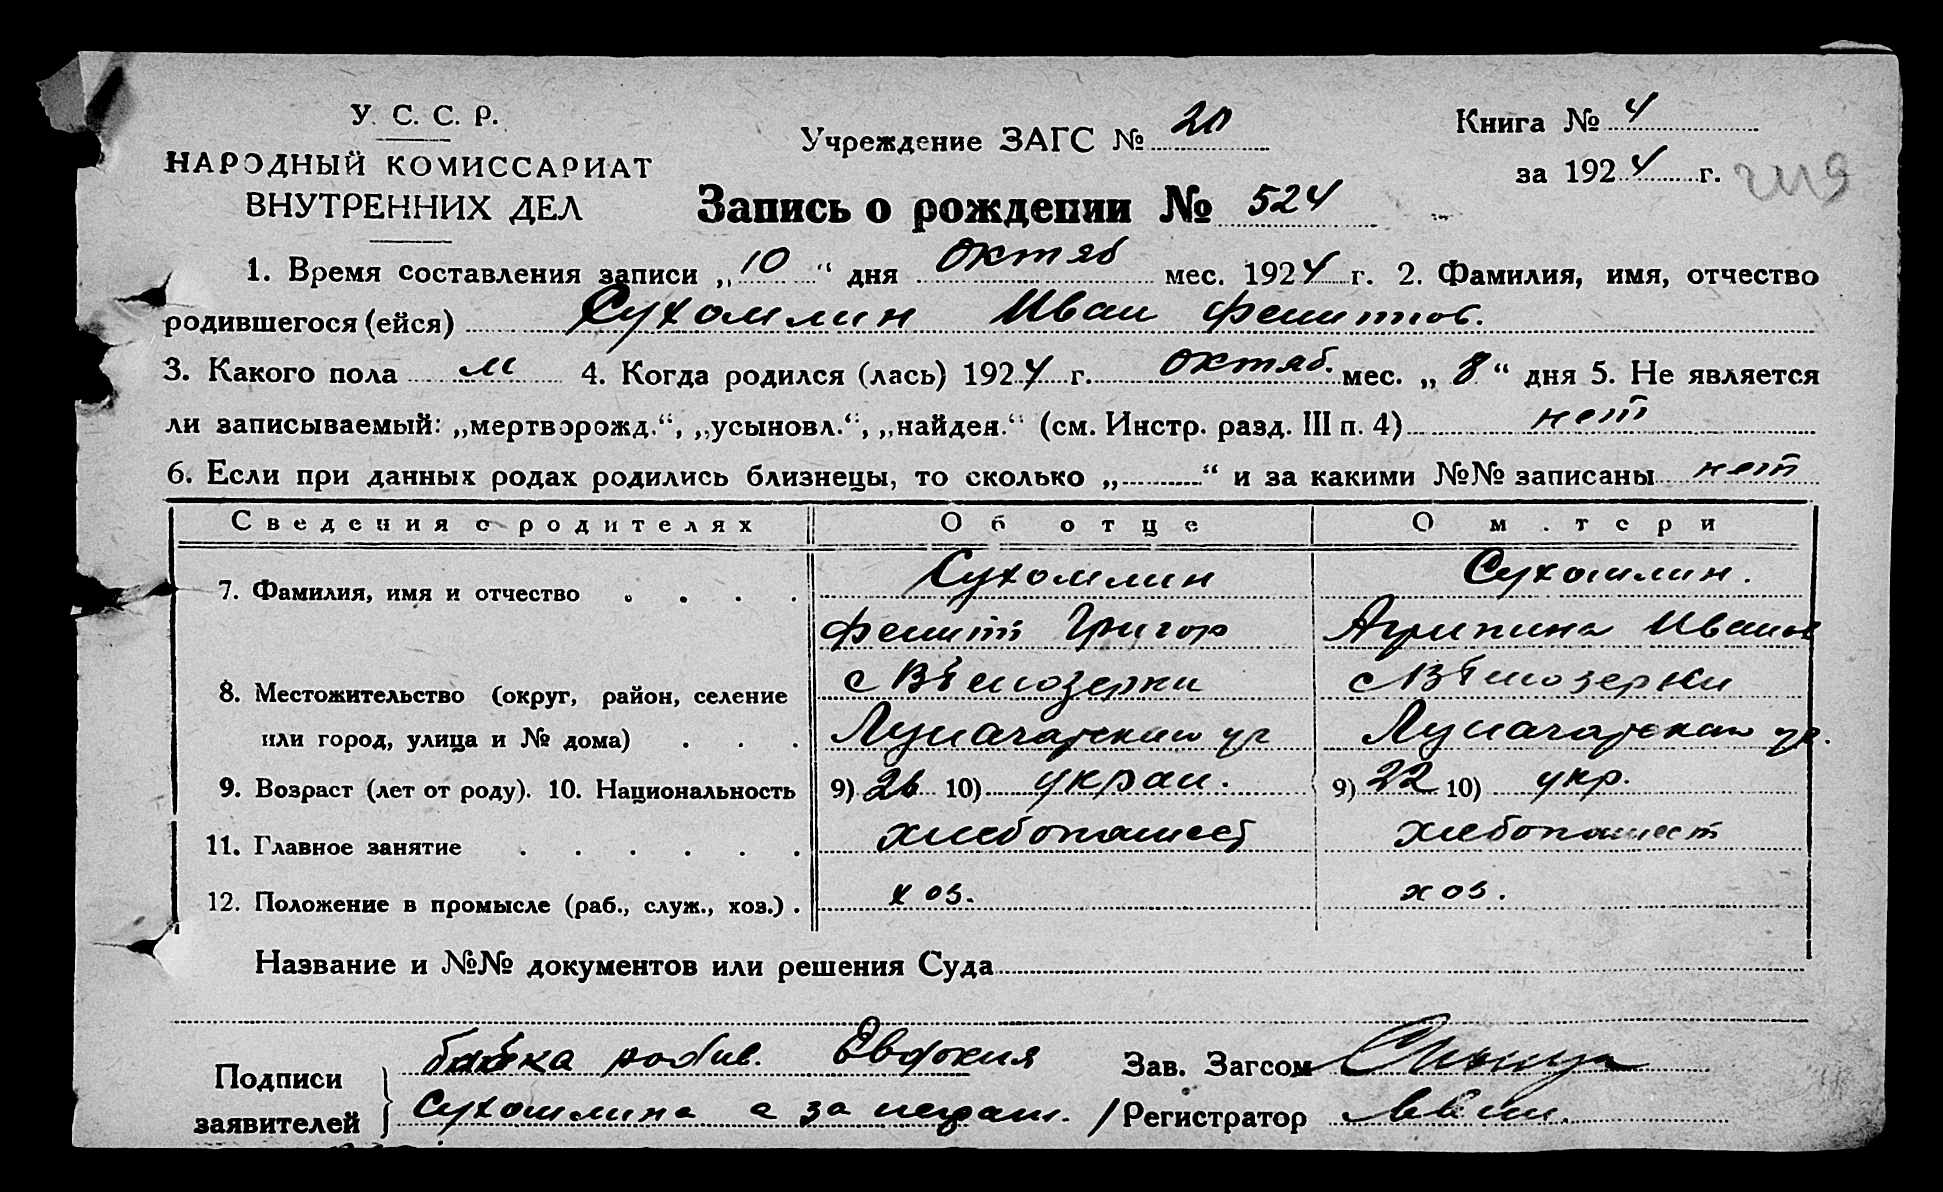 У. С. С. Р.
НАРОДНЫЙ КОМИССАРИАТ
ВНУТРЕННИХ ДЕЛ
Учреждение ЗАГС № 20
Книга № 4
за 1924 г.
Запись о рождении № 524
1. Время составления записи „10“ дня октяб мес. 1924 г. 2. Фамилия, имя, отчество
родившегося (ейся) Сухомлин Иван Филиппов.
3. Какого пола м 4. Когда родился (лась) 1924 г. октяб. мес. „8“ дня 5. Не является
ли записываемый: „мертворожд.“, „усыновл.“, „найден.“ (см. Инстр. разд. III п. 4) нет
6. Если при данных родах родились близнецы, то сколько „ “ и за какими №№ записаны нет
Сведения о родителях Об отце О м.тери
7. Фамилия, имя и отчество Сухомлин Сухомлин.
Филипп Григор Агрипина Иванов
8. Местожительство (округ, район, селение с Білозерки с Білозерки
или город, улица и № дома) Луначарская ул Луначарская ул.
9. Возраст (лет от роду). 10. Национальность 9) 26 10) украи. 9) 22 10) укр.
11. Главное занятие хлебопашест хлебопашест
12. Положение в промысле (раб., служ., хоз.) хоз. хоз.
Название и №№ документов или решения Суда
Подписи заявителей бабка Евдокия
Сухомлина а за неграм.
Зав. Загсом
Регистратор